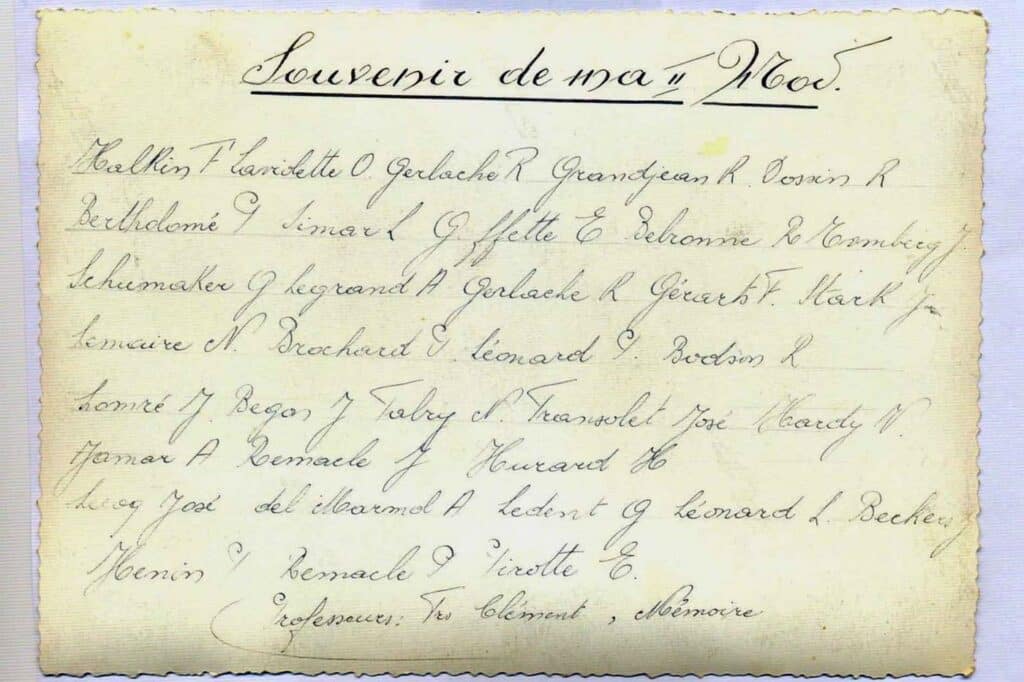 Souvenir de ma II Mod.
Halkin F Laviolette O. Gerlache R Grandjean R. Dossin R
Bertholomé P Simar L Goffette E Delronne R Homberg J.
Schumaker G Legrand A Gerlache R Gérarts F. Stark J
Lemaire N. Brochard P. Léonard P. Bodson R
Lomré J. Begon J Fabry N. Transolet José Hardy N.
Jamar A Remacle J Hurard H
Lucq José del Marmol A Ledent G Léonard L. Beckers J
Henin P Remacle P Pirotte E.
Professeurs: Frs Clément, Mémoire